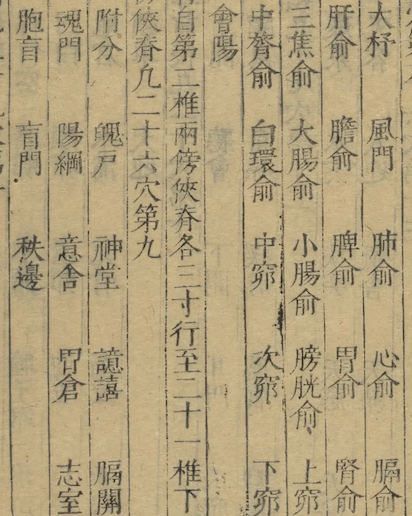 大杼 風門 肺俞 心俞 膈俞
肝俞 膽俞 脾俞 胃俞 腎俞
三焦俞 大腸俞 小腸俞 膀胱俞 上窌
中膂俞 白環俞 中窌 次窌 下窌
會陽
自第二椎兩傍俠脊各三寸行至二十一椎下
俠脊凡二十六穴第九
附分 魄戶 神堂 譩譆 膈關
魂門 陽綱 意舍 胃倉 志室
胞肓 肓門 秩邊